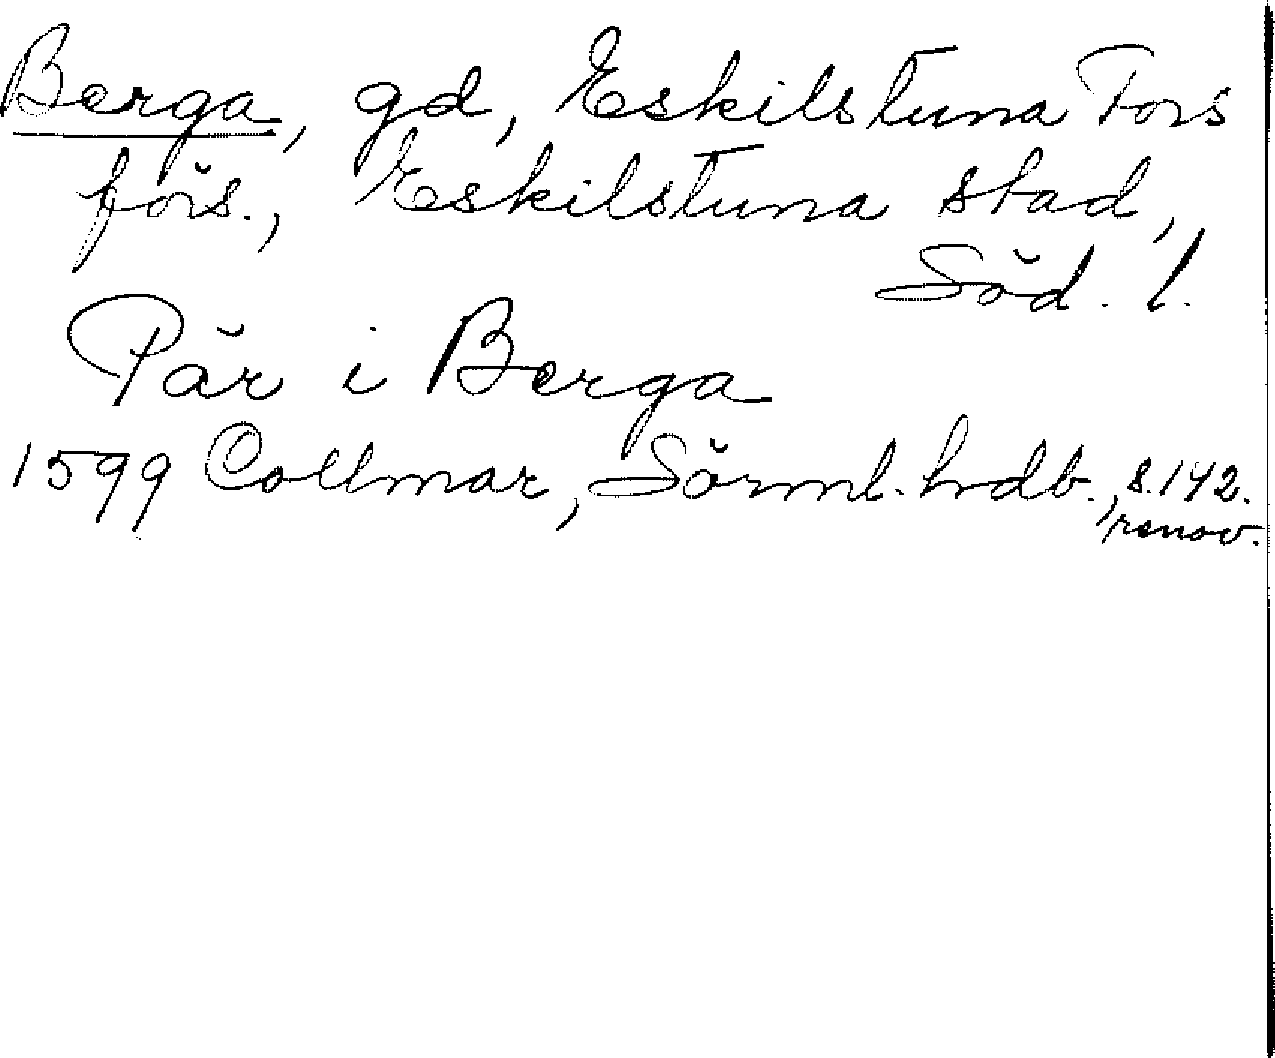 Berga, gd, Eskilstuna Fors
förs., Eskilstuna stad,
Söd. l.
Pär i Berga
1599 Collmar, Sörml. hrdb., s. 142.
renov.